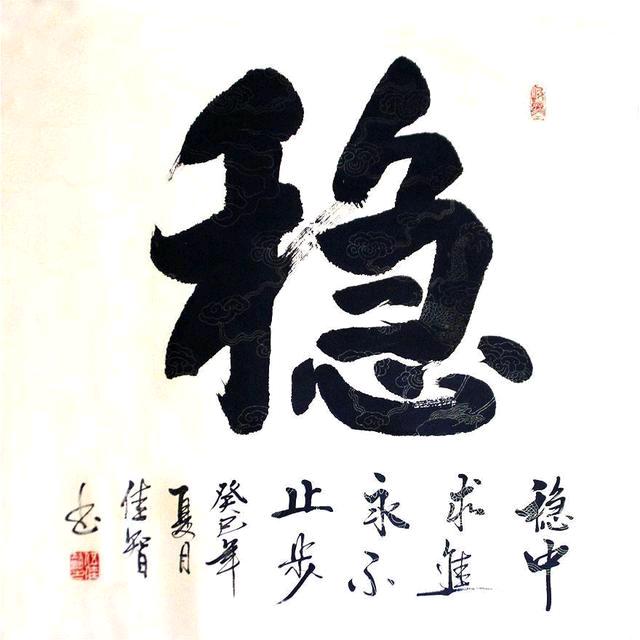 稳
稳中
求進
永不
止步
癸巳年
夏月
佳智
书